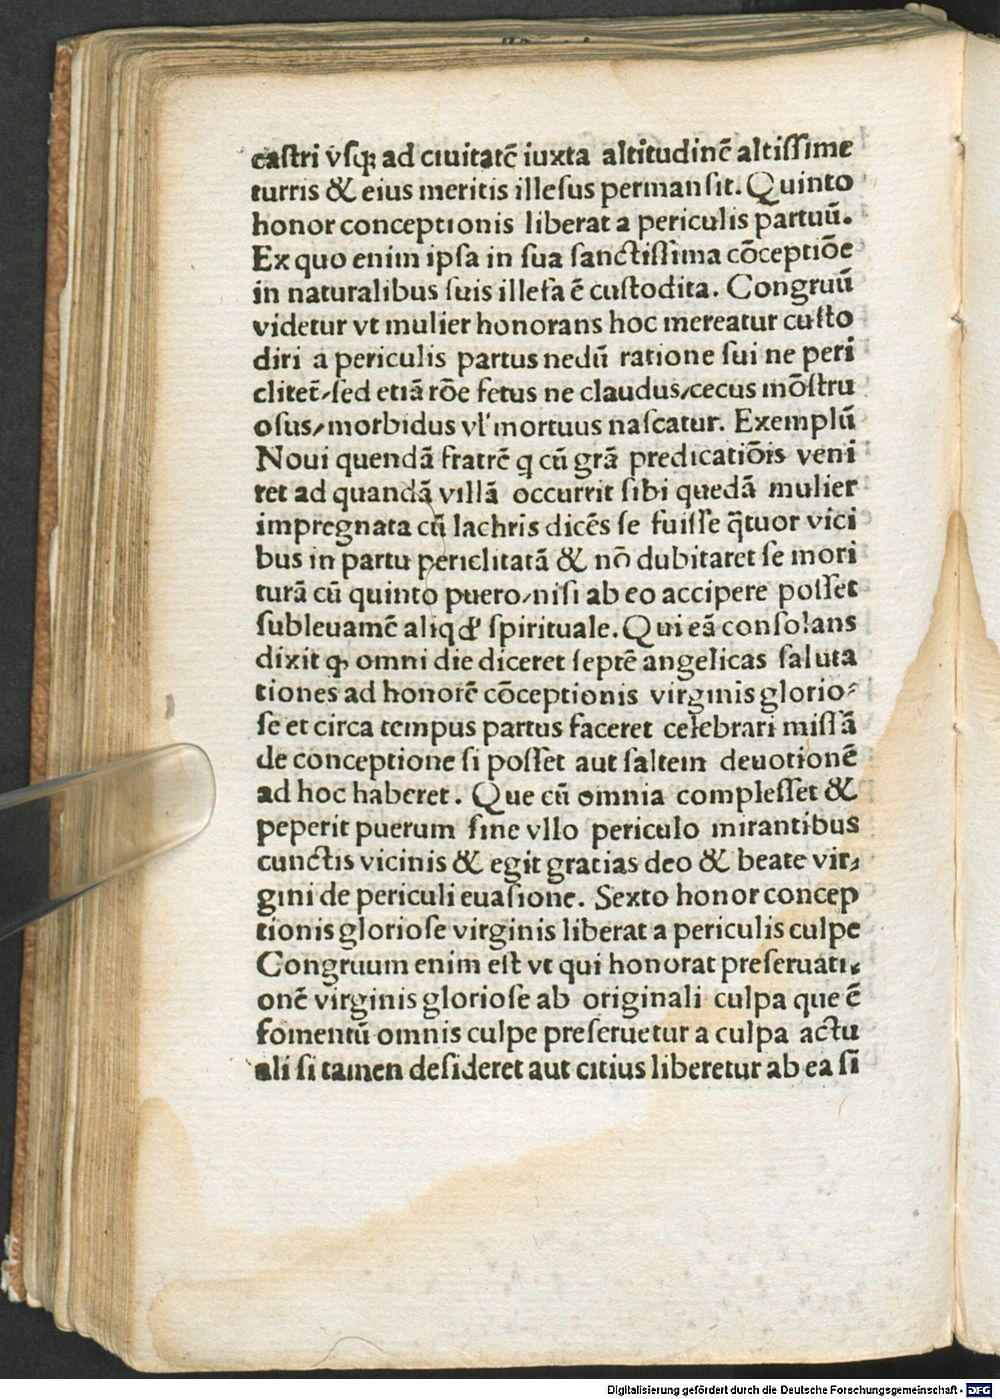 castri vſqꝫ ad ciuitatē iuxta altitudinē altiſſime
turris & eius meritis illeſus permanſit. Quinto
honor conceptionis liberat a periculis partuū.
Ex quo enim ipſa in ſua ſanctiſſima cōceptiōe
in naturalibus ſuis illeſa ē cuſtodita. Congruū
videtur vt mulier honorans hoc mereatur cuſto
diri a periculis partus nedū ratione ſui ne peri
clitet̄/ſed etiā rōe fetus ne claudus/cecus mōſtru
oſus/morbidus vl' mortuus naſcatur. Exemplū
Noui quendā fratrē q cū grā predicatiōis veni
ret ad quandā villā occurrit ſibi quedā mulier
impregnata cū lachris dicēs ſe fuiſſe q̄tuor vici
bus in partu periclitatā & nō dubitaret ſe mori
turā cū quinto puero/niſi ab eo accipere poſſet
ſubleuamē aliqd' ſpirituale. Qui eā conſolans
dixit ꝙ omni die diceret ſeptē angelicas ſaluta
tiones ad honorē cōceptionis virginis glorio⸗
ſe et circa tempus partus faceret celebrari miſſā
de conceptione ſi poſſet aut ſaltem deuotionē
ad hoc haberet. Que cū omnia compleſſet &
peperit puerum ſine vllo periculo mirantibus
cunctis vicinis & egit gratias deo & beate vir⸗
gini de periculi euaſione. Sexto honor concep
tionis glorioſe virginis liberat a periculis culpe
Congruum enim eſt vt qui honorat preſeruati⸗
onē virginis glorioſe ab originali culpa que ē
fomentū omnis culpe preſeruetur a culpa actu
ali ſi tamen deſideret aut citius liberetur ab ea ſi
Digitalisierung gefördert durch die Deutsche Forschungsgemeinschaft - DFG